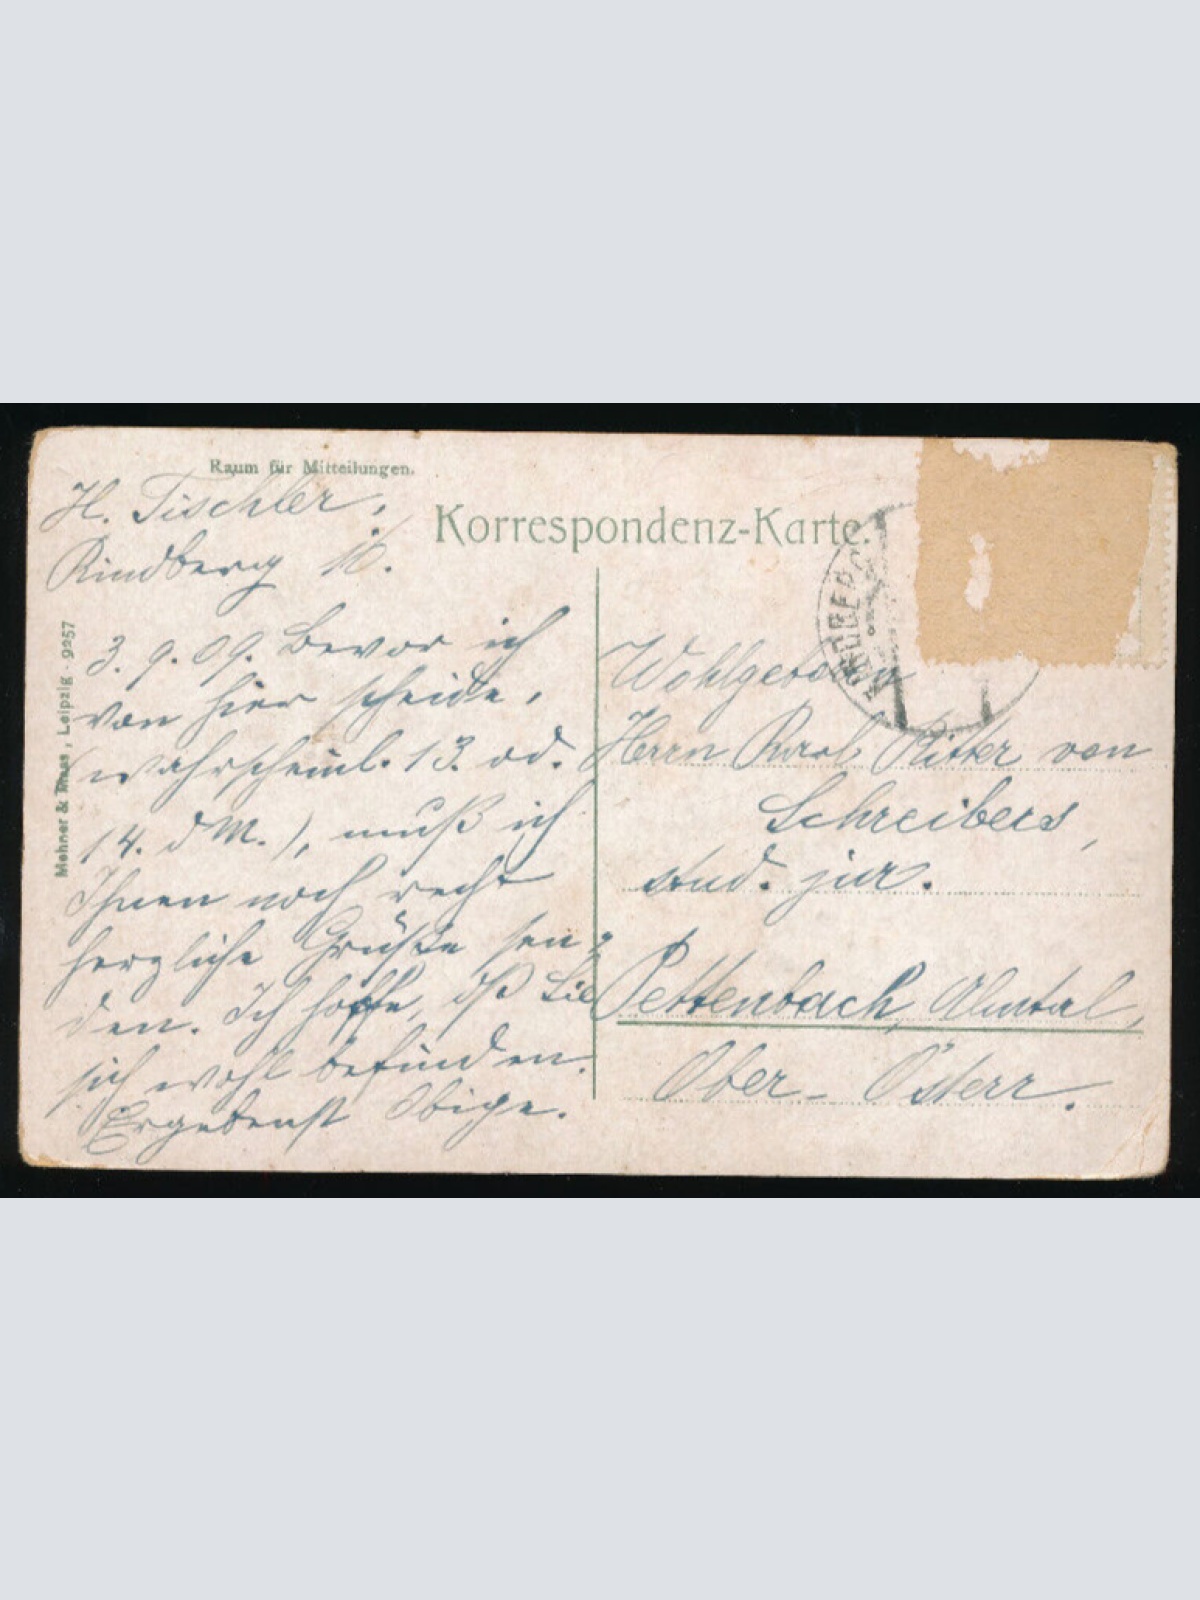 Raum für Mitteilungen.
Korrespondenz-Karte.
H. Tischler,
Rindberg 16.
3. 9. 09. Bevor ich
von hier scheide,
(wahrscheinl. 13. od.
14. d M.), muß ich
Ihnen noch recht
herzliche Grüße sen-
den. Ich hoffe, dß Sie
sich wohl befinden.
Ergebenst Obige.
Wohlgeboren
Herrn Karl Ritter von
Schreibers,
stud. jur.
Pettenbach, Almtal,
Ober-Österr.
Mehner & Maas, Leipzig 9257